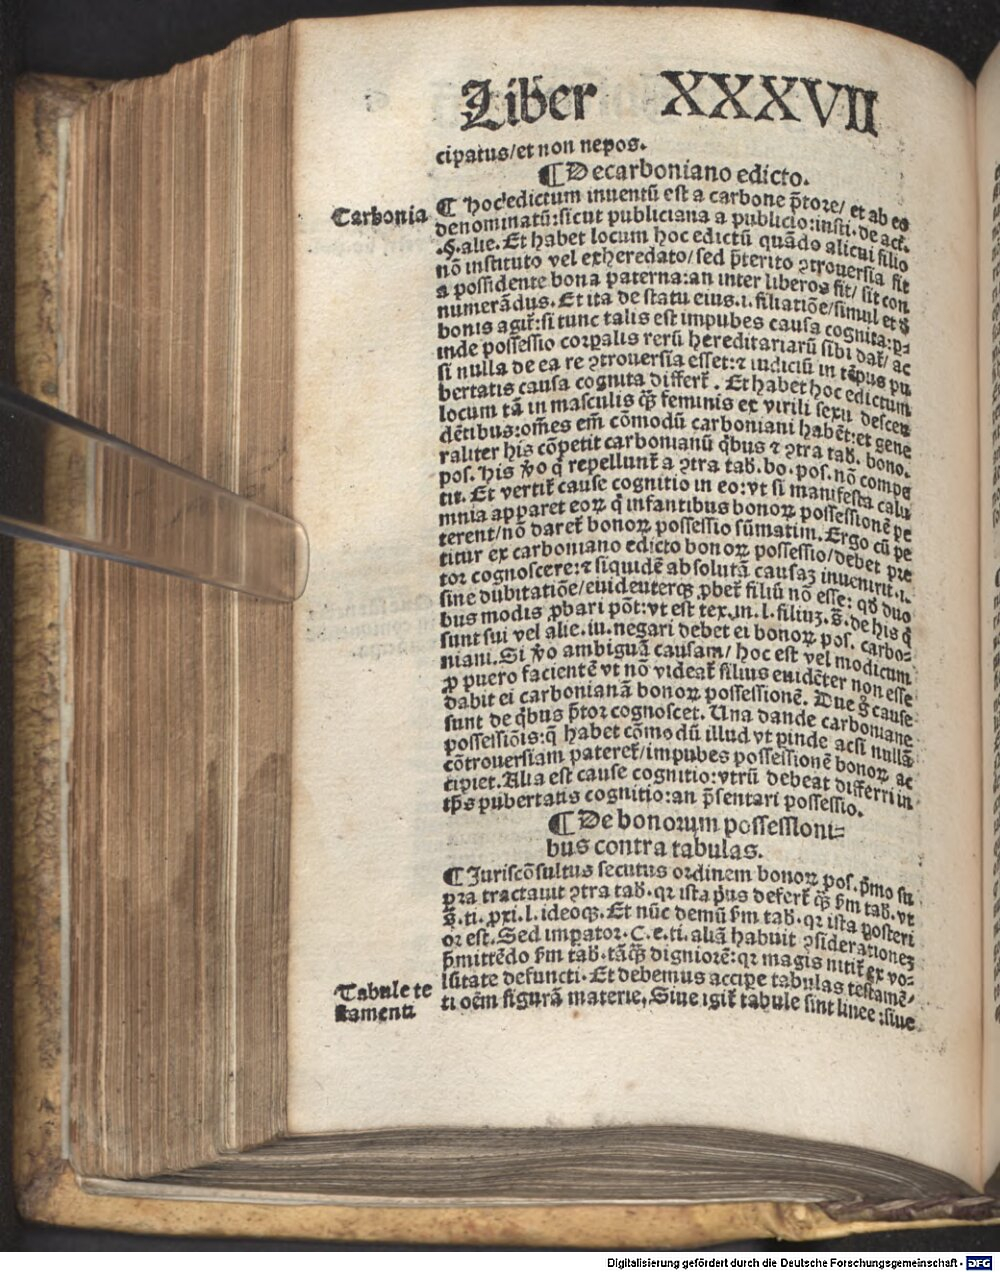 Liber XXXVII
cipatus/et non nepos.
¶ De carboniano edicto.
Carbonia
¶ Hoc edictum inuentū est a carbone p̄tore/ et ab eo
denominatū:sicut publiciana a publicio:insti.de act.
.§.alie. Et habet locum hoc edictū quādo alicui filio
nō instituto vel exheredato/sed p̄terito ꝯtrouersia fit
a possidente bona paterna:an inter liberos sit/ sit con
numerādus. Et ita de statu eius.i.filiatiōe/simul et ꝺ̄
bonis agit̄:si tunc talis est impubes causa cognita:p-
inde possessio corpalis rerū hereditariarū sibi dat̄/ ac
si nulla de ea re ꝯtrouersia esset:⁊ iudiciū in tēpus pu
bertatis causa cognita differt̄. Et habet hoc edictum
locum tā in masculis q̄ꝫ feminis ex virili sexu descen
dētibus:om̄es em̄ cōmodū carboniani habēt:et gene
raliter his cōpetit carbonianū q̄bus ⁊ ꝯtra tab. bono.
pos. His v̄o q̄ repellunt̄ a ꝯtra tab. bo. pos. nō compe
tit. Et vertit̄ cause cognitio in eo:vt si manifesta calu
mnia apparet eoꝝ q̄ infantibus bonoꝝ possessionē pe
terent/nō daret̄ bonoꝝ possessio sūmatim. Ergo cū pe
titur ex carboniano edicto bonoꝝ possessio/debet pre
tor cognoscere:⁊ siquidē absolutā causaꝫ inuenirit.i.
sine dubitatiōe/euidenterqꝫ ꝓbet̄ filiū nō esse: qd̄ duo
bus modis ꝓbari pōt:vt est tex.in.l.filiuꝫ.s̄.de his q̄
sunt sui vel alie.iu.negari debet ei bonoꝝ pos. carbo-
niani. Si v̄o ambiguā causam/ hoc est vel modicum
ꝓ puero facientē vt nō videat̄ filius euidēter non esse
dabit ei carbonianā bonoꝝ possessionē. Due g̊ cause
sunt de q̄bus p̄tor cognoscet. Una dande carboniane
possessiōis:q̄ habet cōmodū illud vt ꝑinde acsi nullā
cōtrouersiam pateret̄/impubes possessionē bonoꝝ ac
cipiet. Alia est cause cognitio:vtrū debeat differri in
tp̄s pubertatis cognitio:an p̄sentari possessio.
¶ De bonorum possessioni-
bus contra tabulas.
¶ Juriscōsultus secutus ordinem bonoꝝ pos. p̄mo su
pra tractauit ꝯtra tab.qꝛ ista p̄us defert̄ q̄ꝫ s̄m tab. vt
s̄.ti.ꝓxi.l.ideoqꝫ. Et nūc demū s̄m tab.qꝛ ista posteri
or est. Sed imꝑator.C.e.ti.aliā habuit ꝯsiderationeꝫ
p̄mittēdo s̄m tab.tāq̄ꝫ digniorē:qꝛ magis nitit̄ ex vo-
lūtate defuncti. Et debemus accipe tabulas testamē-
Tabule te
stamenti
ti oēm figurā materie. Siue igit̄ tabule sint linee:siue
Digitalisierung gefördert durch die Deutsche Forschungsgemeinschaft - DFG